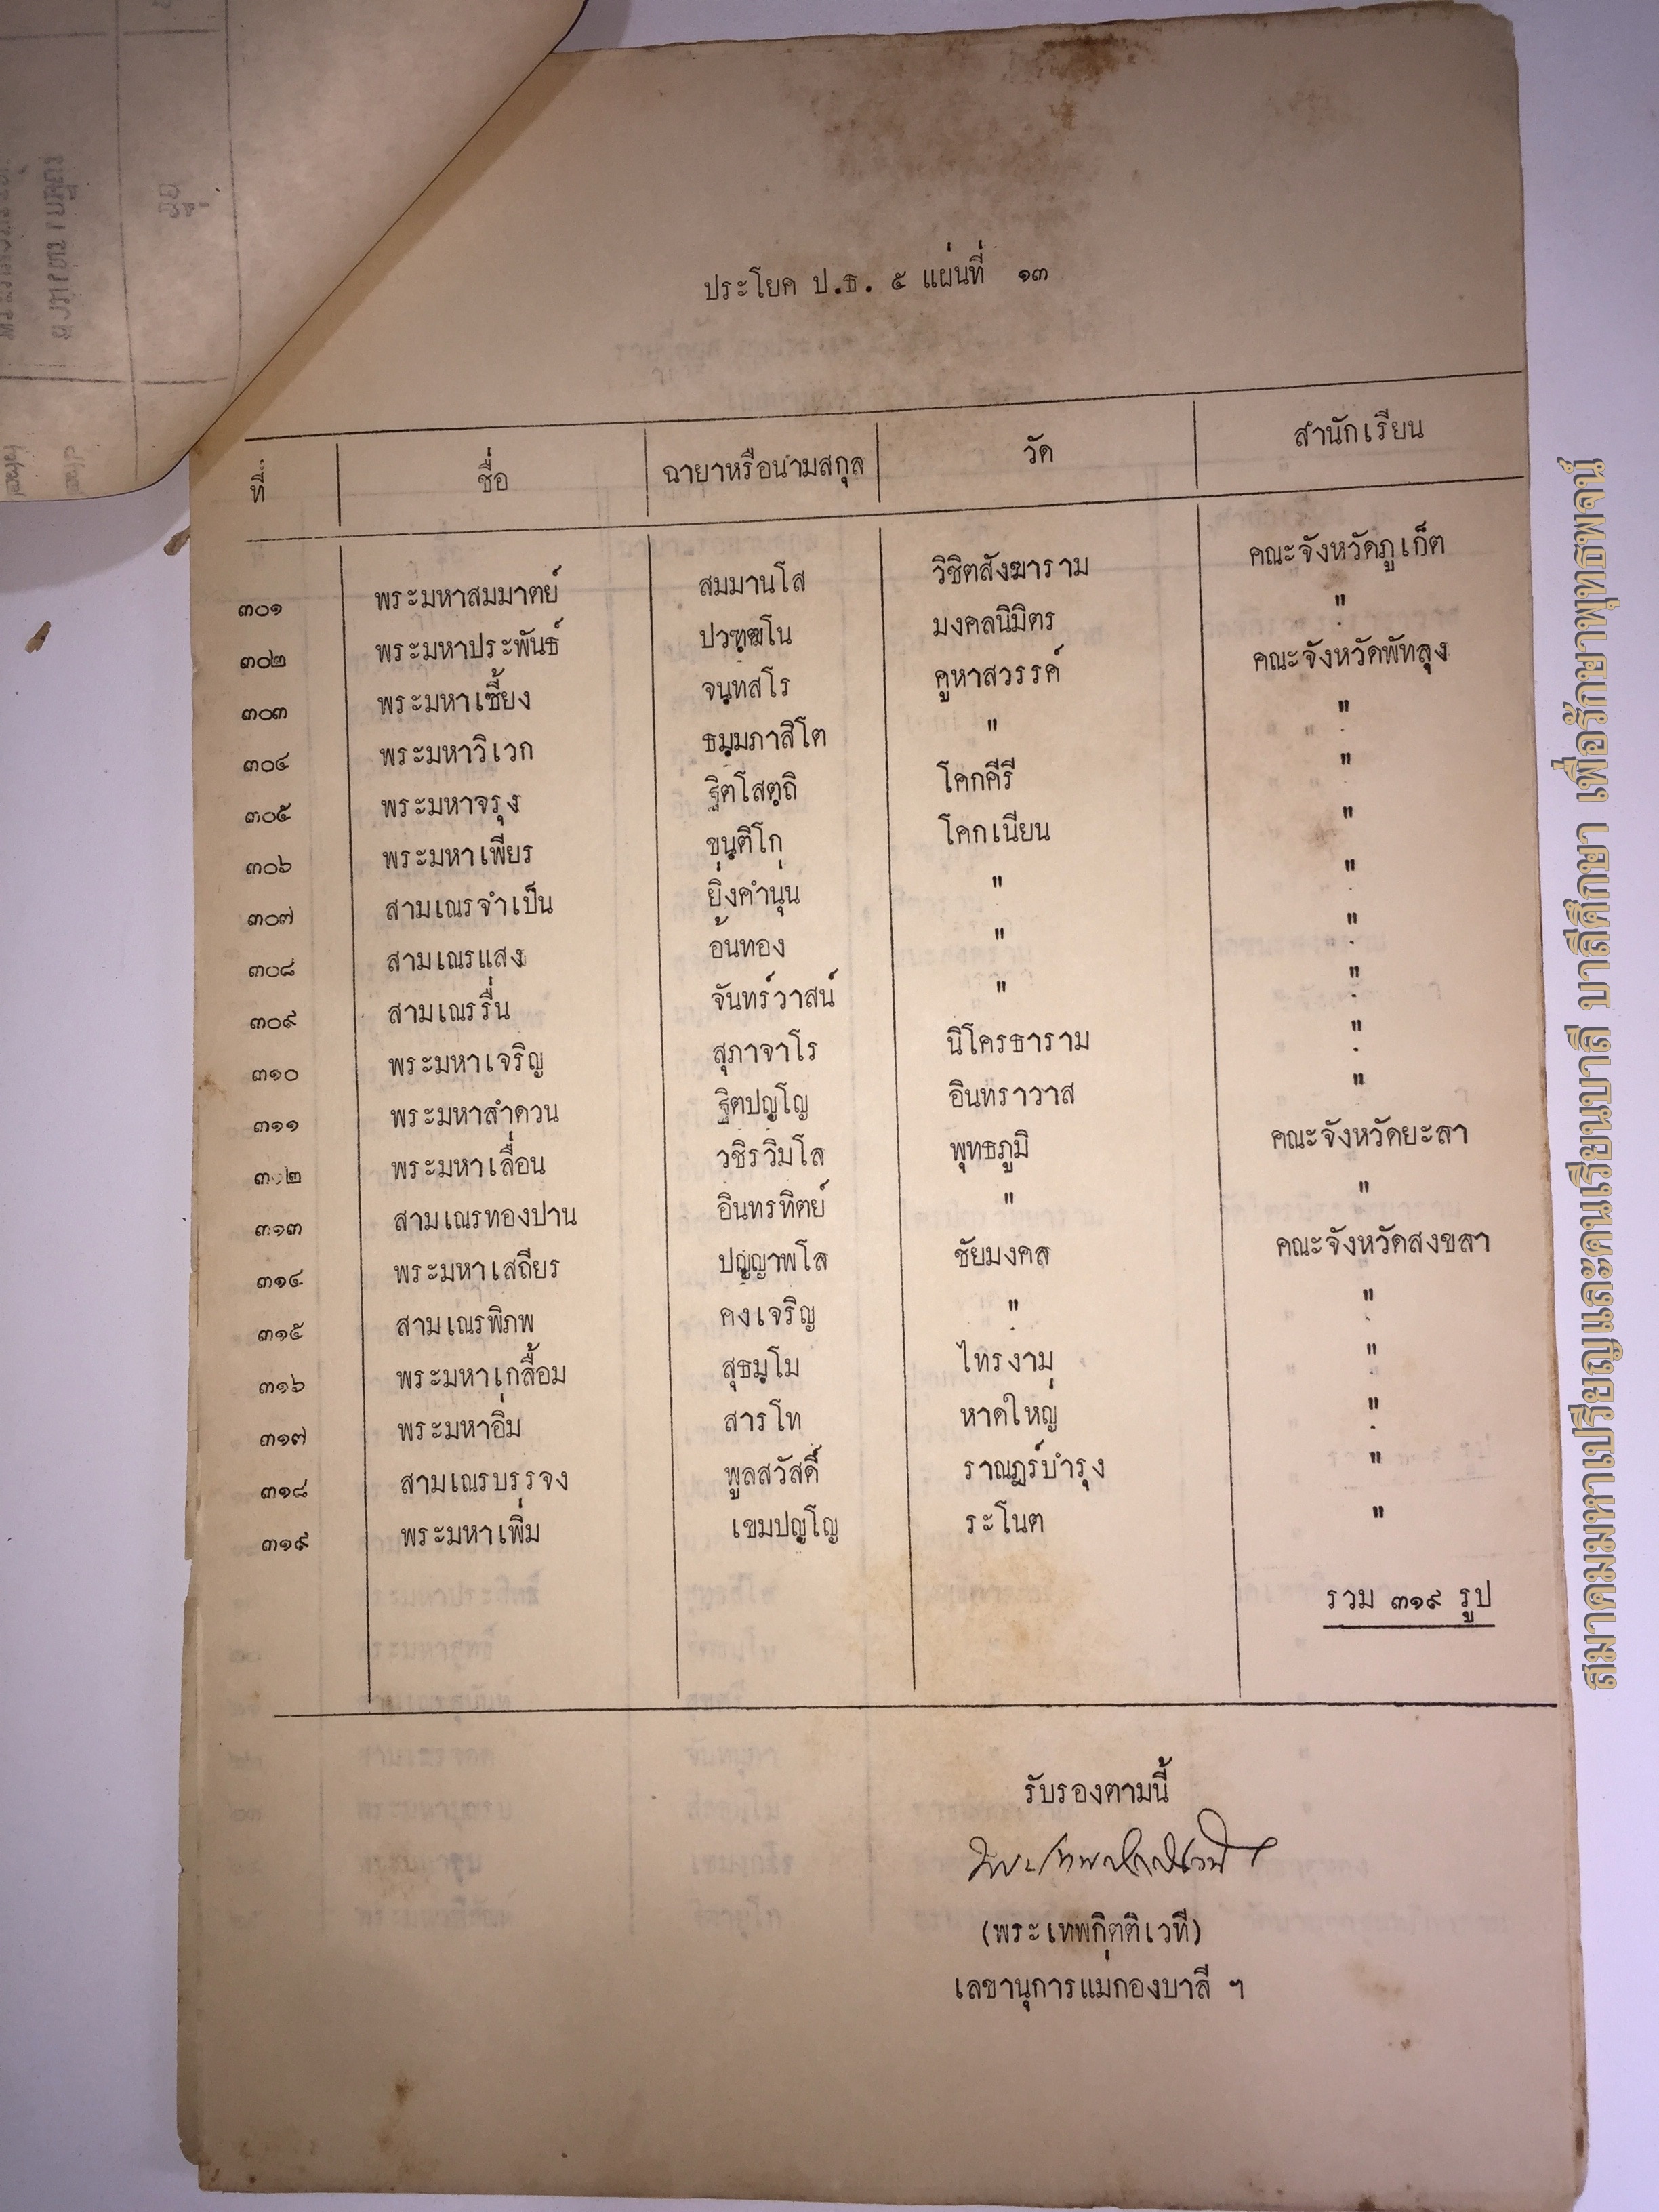 ประโยค ป.ธ. ๕ แผ่นที่ ๑๓
ที่ ชื่อ ฉายาหรือนามสกุล วัด สำนักเรียน
๓๐๑ พระมหาสมมาตย์ สมมานโส วิชิตสังฆาราม คณะจังหวัดภูเก็ต
๓๐๒ พระมหาประพันธ์ ปวฑฺฒโน มงคลนิมิตร "
๓๐๓ พระมหาเซี้ยง จนฺทสโร คูหาสวรรค์ คณะจังหวัดพัทลุง
๓๐๔ พระมหาวิเวก ธมฺมภาสิโต " "
๓๐๕ พระมหาจรุง ฐิตโสตฺถิ โคกคีรี "
๓๐๖ พระมหาเพียร ขนฺติโก โคกเนียน "
๓๐๗ สามเณรจำเป็น ยิ่งคำนุ่น " "
๓๐๘ สามเณรแสง อ้นทอง " "
๓๐๙ สามเณรรื่น จันทร์วาสน์ " "
๓๑๐ พระมหาเจริญ สุภาจาโร นิโครธาราม "
๓๑๑ พระมหาลำดวน ฐิตปญฺโญ อินทราวาส "
๓๑๒ พระมหาเลื่อน วชิรวิมโล พุทธภูมิ คณะจังหวัดยะลา
๓๑๓ สามเณรทองปาน อินทรทิตย์ " "
๓๑๔ พระมหาเสถียร ปญฺญาพโล ชัยมงคล คณะจังหวัดสงขลา
๓๑๕ สามเณรพิภพ คงเจริญ " "
๓๑๖ พระมหาเกลื้อม สุธมฺโม ไทรงาม "
๓๑๗ พระมหาอิ่ม สารโท หาดใหญ่ "
๓๑๘ สามเณรบรรจง พูลสวัสดิ์ ราณฎร์บำรุง "
๓๑๙ พระมหาเพิ่ม เขมปญฺโญ ระโนต "
รวม ๓๑๙ รูป
รับรองตามนี้
(พระเทพกิตติเวที)
เลขานุการแม่กองบาลี ฯ
สมาคมมหาเปรียญและคนเรียนบาลี บาลีศึกษา เพื่อรักษาพุทธพจน์